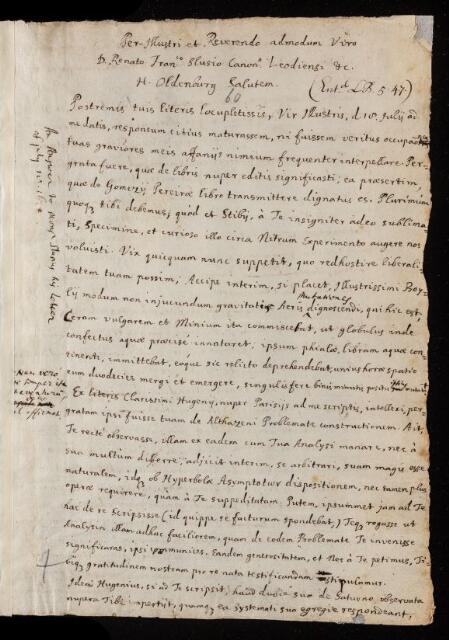 Per-Illustri et Reverendo admodum Viro
D. Renato Franc.º Slusio Canon.º Leodiensi &c.
H. Oldenburg Salutem.
(Ent.d LB. 5. 47.)
60
Postremis tuis literis locupletissis, Vir Illustris, d. 10. Julij ad
me datis, responsum citius maturassem, ni fuissem veritus occupationes
tuas graviores meis affanijs nimium frequenter interpellare. Per-
grata fuere, quae de libris nuper editis significasti; ea praesertim,
quae de Gomezij Pereirae libro transmittere dignatus es. Plurimum
quoq; tibi debemus, quod et Stibij, à Te insigniter adeo sublima-
ti, Specimine, et curioso illo circa Nitrum Experimento augere nos
voluisti. Vix quicquam nunc suppetit, quo redhostire liberali-
tatem tuam possim; Accipe interim, si placet, Illustrissimi Boy-
lij modum non injucundum gravitatis Aeris mutationes dignoscendi, qui hic est;
Ceram vulgarem et Minium ita commiscebat, ut globulus inde
confectus aquae praecisè innataret; ipsum phialae, libram aquae con-
tinenti, immittebat, eoque sic relicto deprehendebat, unius horae spatio
eum duodecies mergi et emergere, singulis fere binis minutis
Ex literis Clarissimi Hugenij, nuper Parisijs ad me scriptis, intellexi, per-
gratam ipsi fuisse tuam de Alhazeni Problemate constructionem. Ait,
Te rectè observasse, illam ex eadem cum Tua Analysi manare, nec à
sua multum differre; adjicit interim, se arbitrari, suam magis esse
naturalem, idq; ob Hyperbolae Asymptotωn dispositionem, nec tamen plus
operae requirere, quam à Te suppeditatam. Putem, ipsummet jam ad Te
hac de re scripsisse (id quippe se facturum spondebat,) Teq; rogasse ut
Analysin illam adhuc faciliorem, quam de eodem Problemate Te invenisse
significaras, ipsi communices. Eandem generositatem, et Nos à Te petimus, Ti-
biq; gratitudinem nostram pro re nata testificandam stipulamur.
Idem Hugenius, si ad Te scripsit, haud dubiè sua de Saturno observata
nupera Tibi impertijt, quamq; ea systemati suo egregiè respondeant,